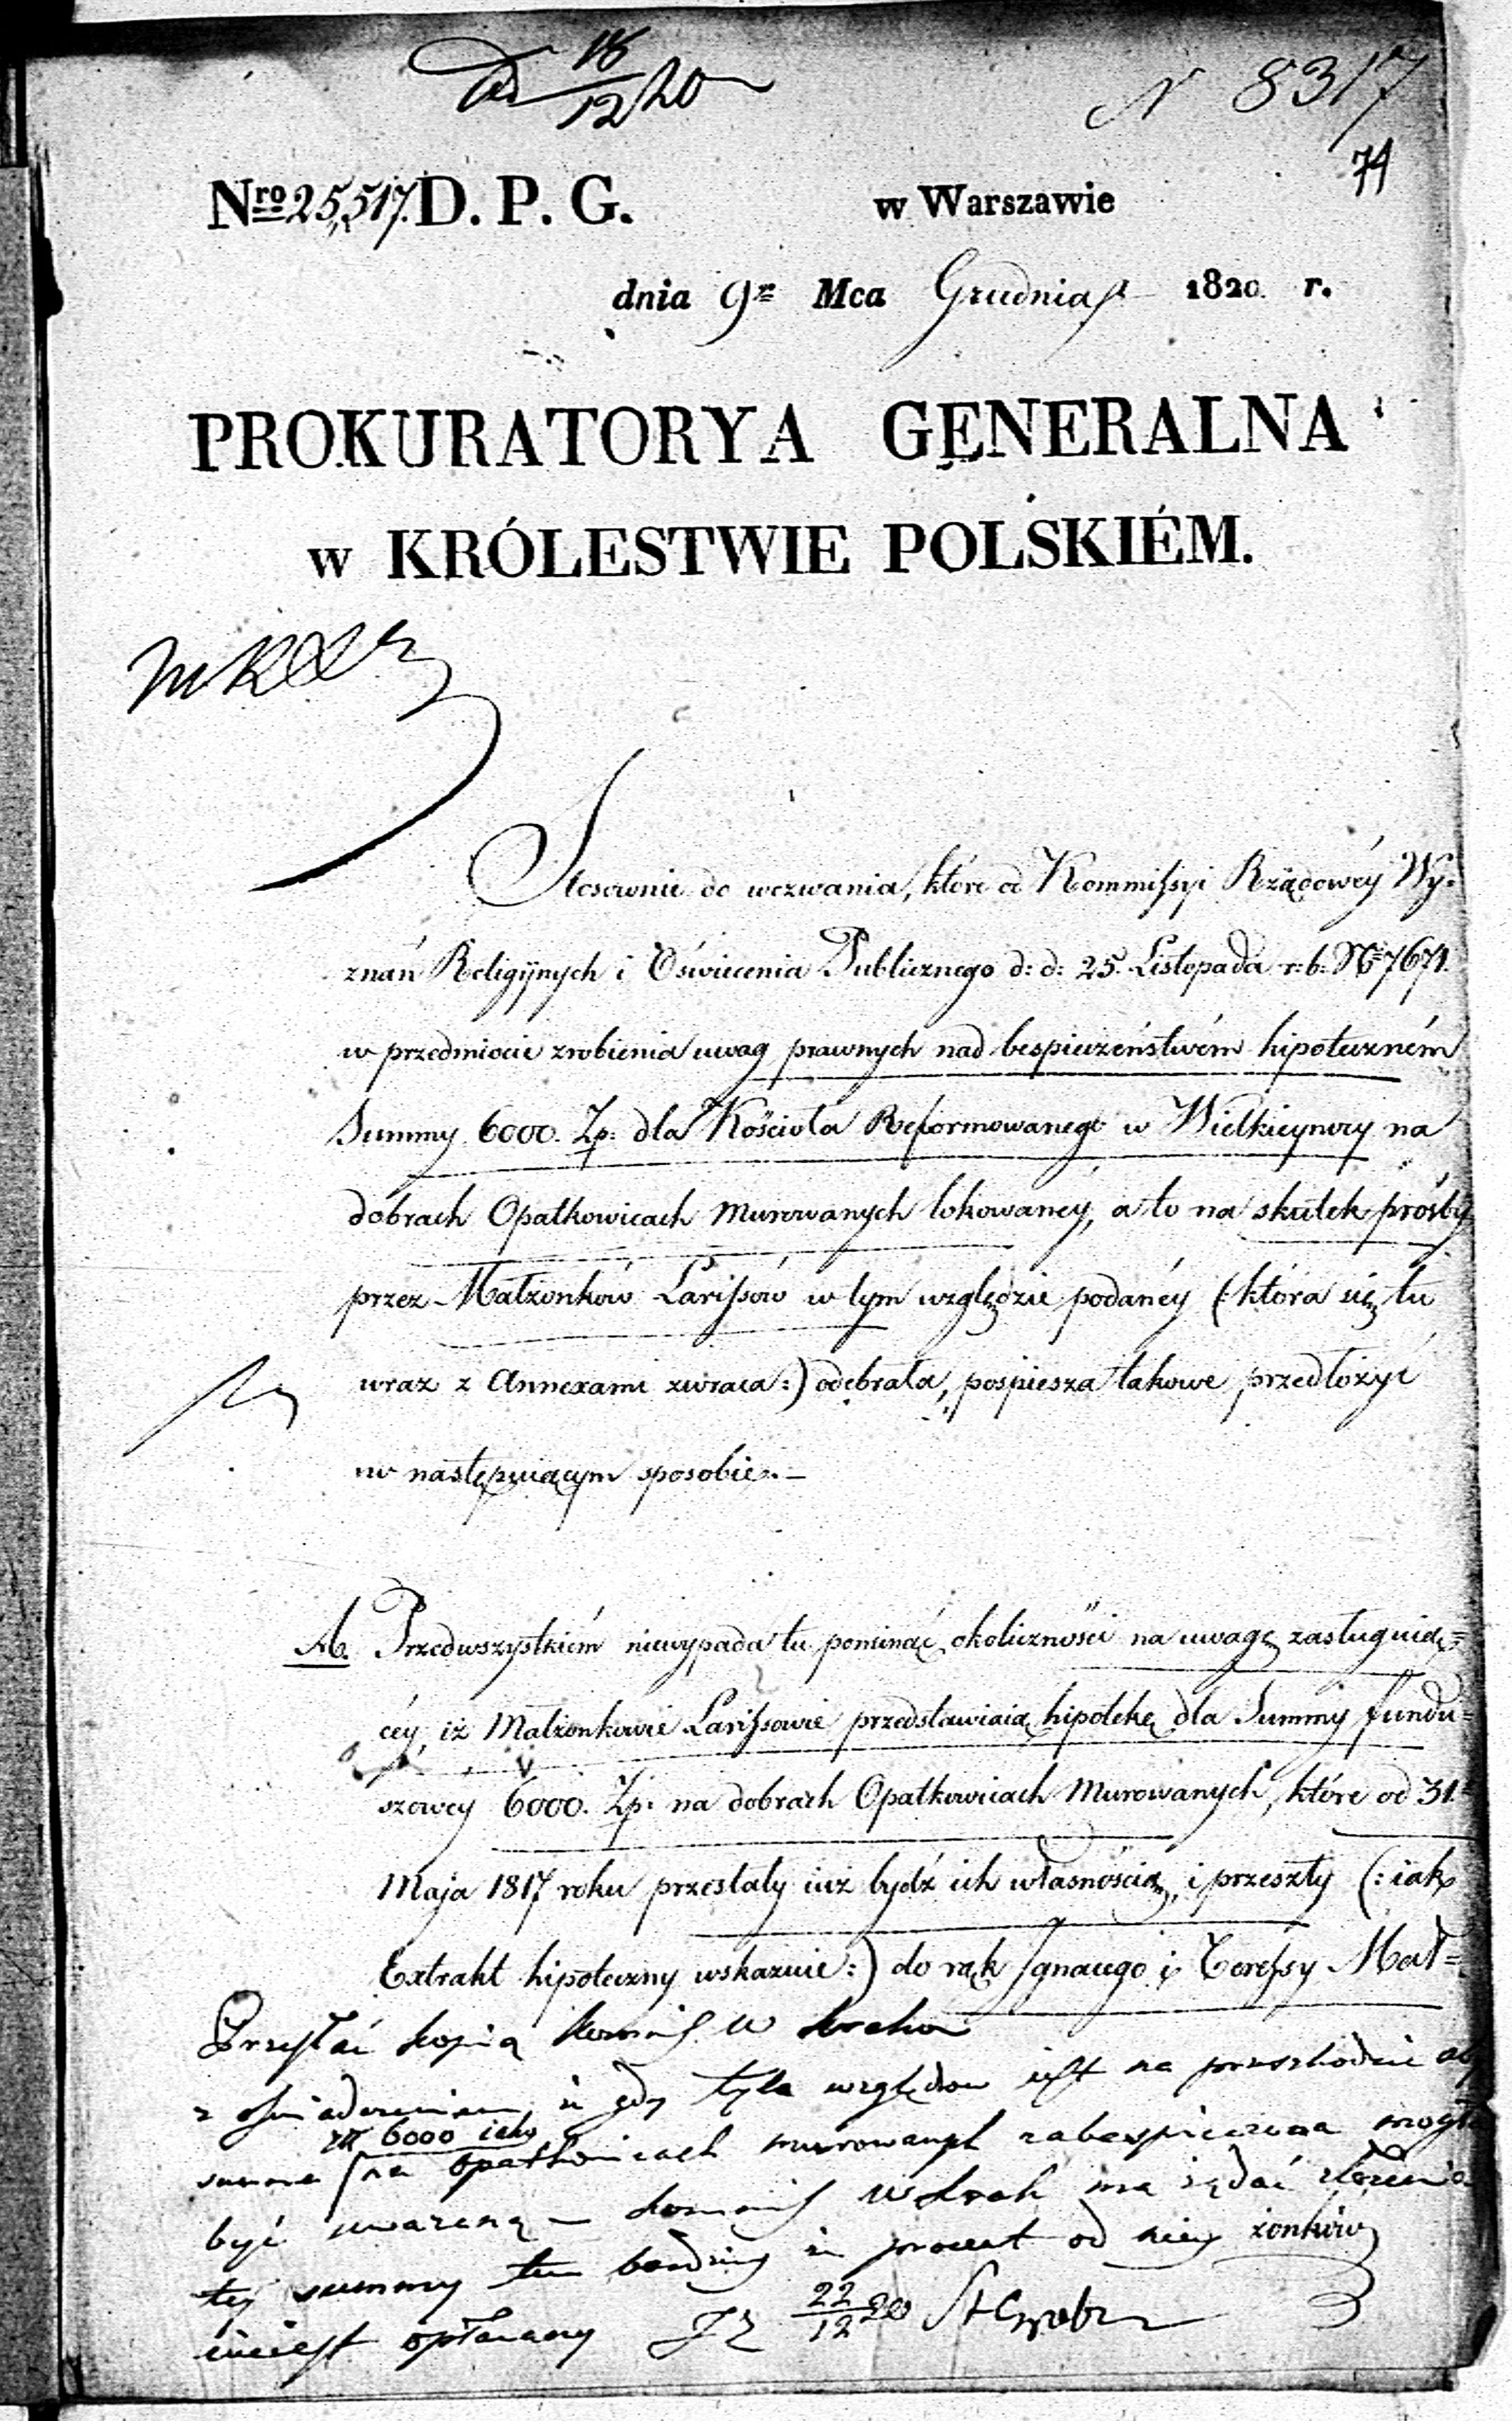 18/12 20
N 8317
74
Nro 25,517. D. P. G. w Warszawie
dnia 9go Mca Grudnia 1820. r.
PROKURATORYA GENERALNA
w KRÓLESTWIE POLSKIÉM.
Stosownie do wezwania, które od Kommissyi Rządowéy Wy=
znań Religiynych i Oświecenia Publicznego d: d: 25. Listopada r: b: No 7671.
w przedmiocie zrobienia uwag prawnych nad bespieczeństwém hipoteczném
Summy 6000. Zp: dla Kościoła Reformowanego w Wielkieynocy na
dobrach Opatkowicach Murowanych lokowanéy, a to na skutek prośby
przez Małżonków Larissów w tym względzie podanéy (: która się tu
wraz z Annexami zwraca :) odebrała, pospiesza takowe przedłożyć
w następuiącym sposobie. –
A. Przedewszystkiém niewypada tu pominąć okoliczności na uwagę zasługuią=
céy, iż Małżonkowie Larissowie przedstawiaią hipotekę dla Summy fundu=
szowéy 6000. Zp: na dobrach Opatkowicach Murowanych, które od 31.
Maja 1817 roku przestały iuż bydź ich własnością, i przeszły (: iak
Extrakt hipoteczny wskazuie :) do rąk Ignacego i Teressy Mał=
żonków
Przesłać kopią Kommis. W Krako
z oświadczeniem iż gdy tyle względów iest na przeszkodzie aby
zł 6000 iako
summa na Opatkowicach murowanych zabezpieczona mogła
być uważaną – Kommis W Krak ma żądać złożenia
téy summy tem bardziey że procent od niey
nieiest opłacany 22/12 20